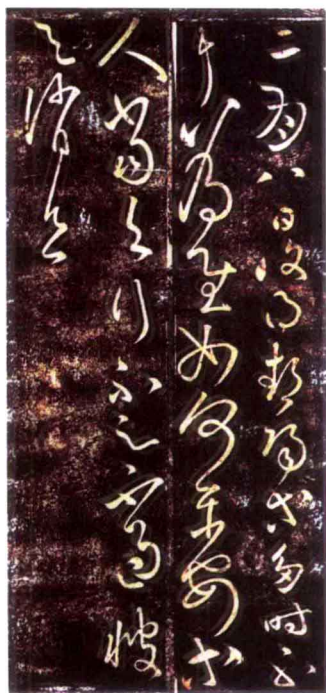 二月八日復得鄱陽等多時不
耳為慰如何平安等
人當與行不足不過彼
與消息